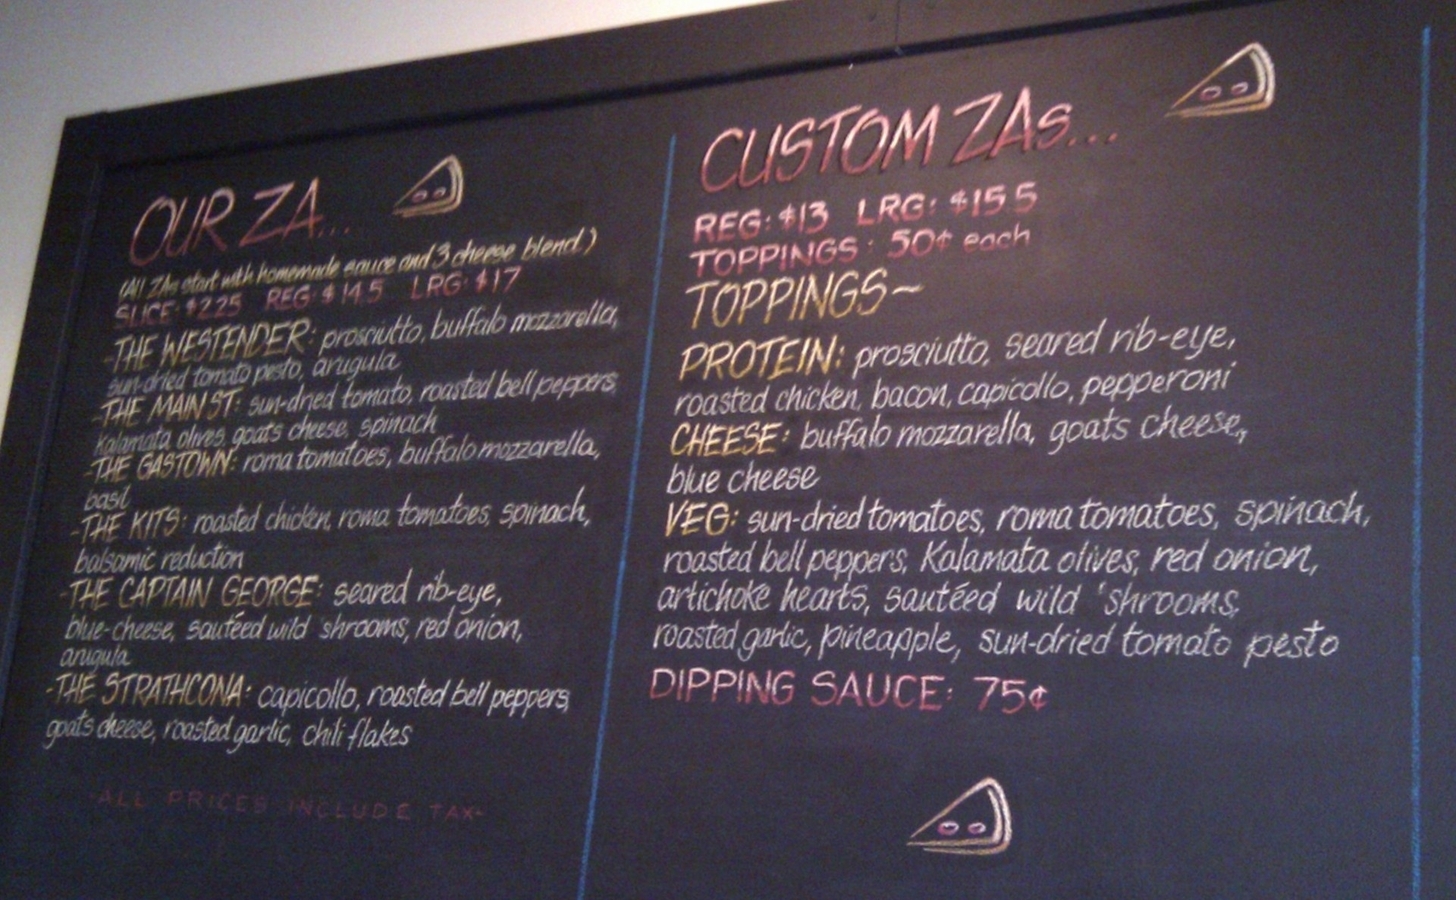 OUR ZA...
(All ZAs start with homemade sauce and 3 cheese blend)
SLICE: $2.25 REG: $14.5 LRG: $17
-THE WESTENDER: prosciutto, buffalo mozzarella,
sun-dried tomato pesto, arugula
-THE MAIN ST: sun-dried tomato, roasted bell peppers,
kalamata olives, goats cheese, spinach
-THE GASTOWN: roma tomatoes, buffalo mozzarella,
basil
-THE KITS: roasted chicken, roma tomatoes, spinach,
balsamic reduction
-THE CAPTAIN GEORGE: seared rib-eye,
blue-cheese, sautéed wild shrooms, red onion,
arugula
-THE STRATHCONA: capicollo, roasted bell peppers,
goats cheese, roasted garlic, chili flakes
-ALL PRICES INCLUDE TAX-
CUSTOM ZAs...
REG: $13 LRG: $15.5
TOPPINGS: 50¢ each
TOPPINGS~
PROTEIN: prosciutto, seared rib-eye,
roasted chicken, bacon, capicollo, pepperoni
CHEESE: buffalo mozzarella, goats cheese,
blue cheese
VEG: sun-dried tomatoes, roma tomatoes, spinach,
roasted bell peppers, Kalamata olives, red onion,
artichoke hearts, sautéed wild 'shrooms,
roasted garlic, pineapple, sun-dried tomato pesto
DIPPING SAUCE: 75¢